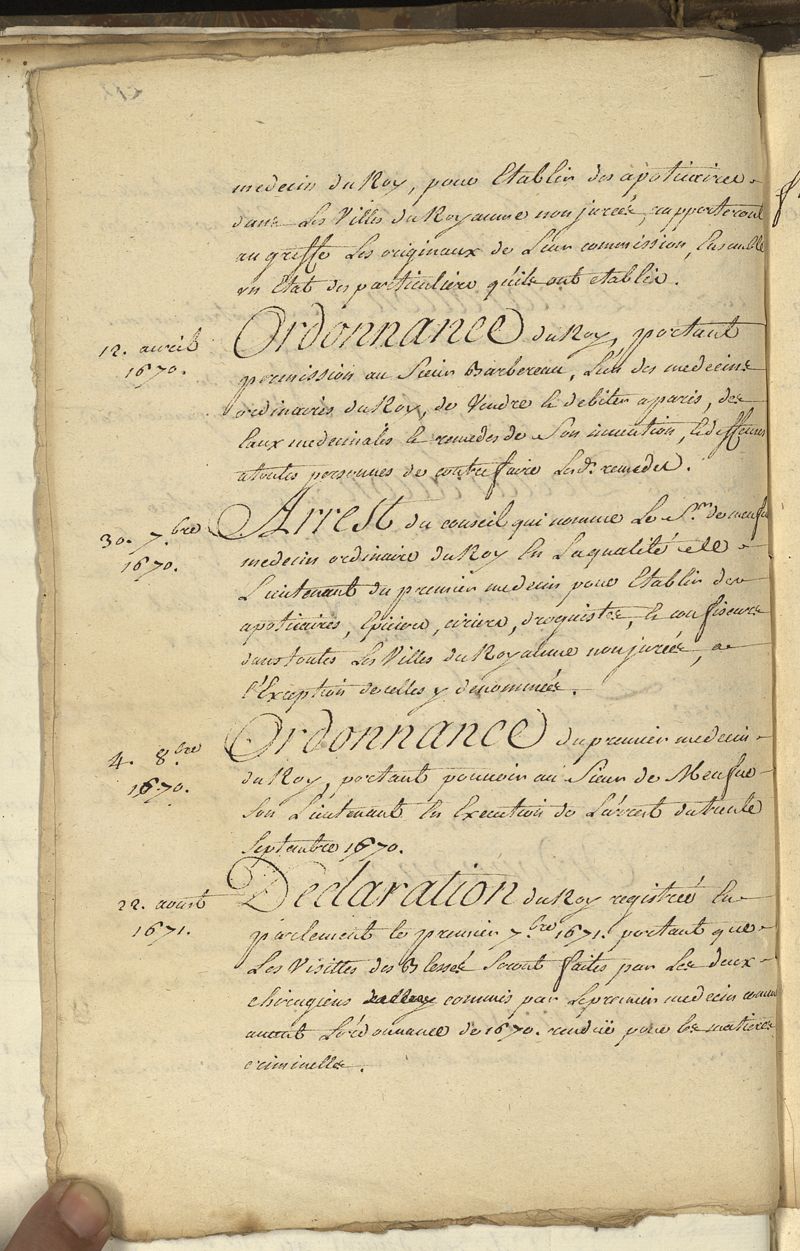 medecin du Roy, pour Etablir des apoticaires
dans Les Villes du Royaume non jurées, rapporteront
au greffe Les originaux de Leur commission, Ensemble
un Etat des particuliers qu'ils ont etablis.
12. avril
1670.
Ordonnance du Roy, portant
permission au Sieur Barbereau, L'un des medecins
ordinaires du Roy, de Vendre & debiter a paris, des
Eaux medecinales & remedes de Son invention, & deffenses
a toutes personnes de contrefaire Lesd. remedes.
30. 7.bre
1670.
Arrest du conseil qui nomme Le S.r de
medecin ordinaire du Roy En La qualité de
Lieutenant du premier medecin pour Etablir des
apoticaires, Epiciers, ciriers, droguistes, & confiseurs
dans toutes Les Villes du Royaume non jurées, a
l'Exception de celles y denommées.
4. 8.bre
1670.
Ordonnance du premier medecin
du Roy, portant pouvoir au Sieur de
Son Lieutenant En Execution de L'arrest du trente
Septembre 1670.
22. aoust
1671.
Declaration du Roy registrée En
parlement le premier 7.bre 1671. portant que
Les Visittes des Blessés Seront faites par Les deux
chirugiens commis par Le premier medecin
avant L'ordonnance de 1670. rendüe pour les matieres
criminelles.